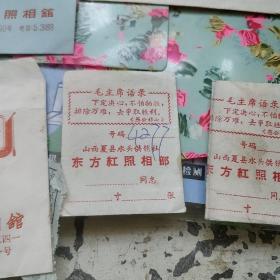 照相館
毛主席语录
下定决心，不怕牺牲，
排除万难，去争取胜利。
《愚公移山》
号码 4277
山西夏县水头供销社
东方紅照相部
同志
寸 张
毛主席语录
下定决心，不怕
排除万难，去争
号码
山西夏县水头
东方紅照相
相館